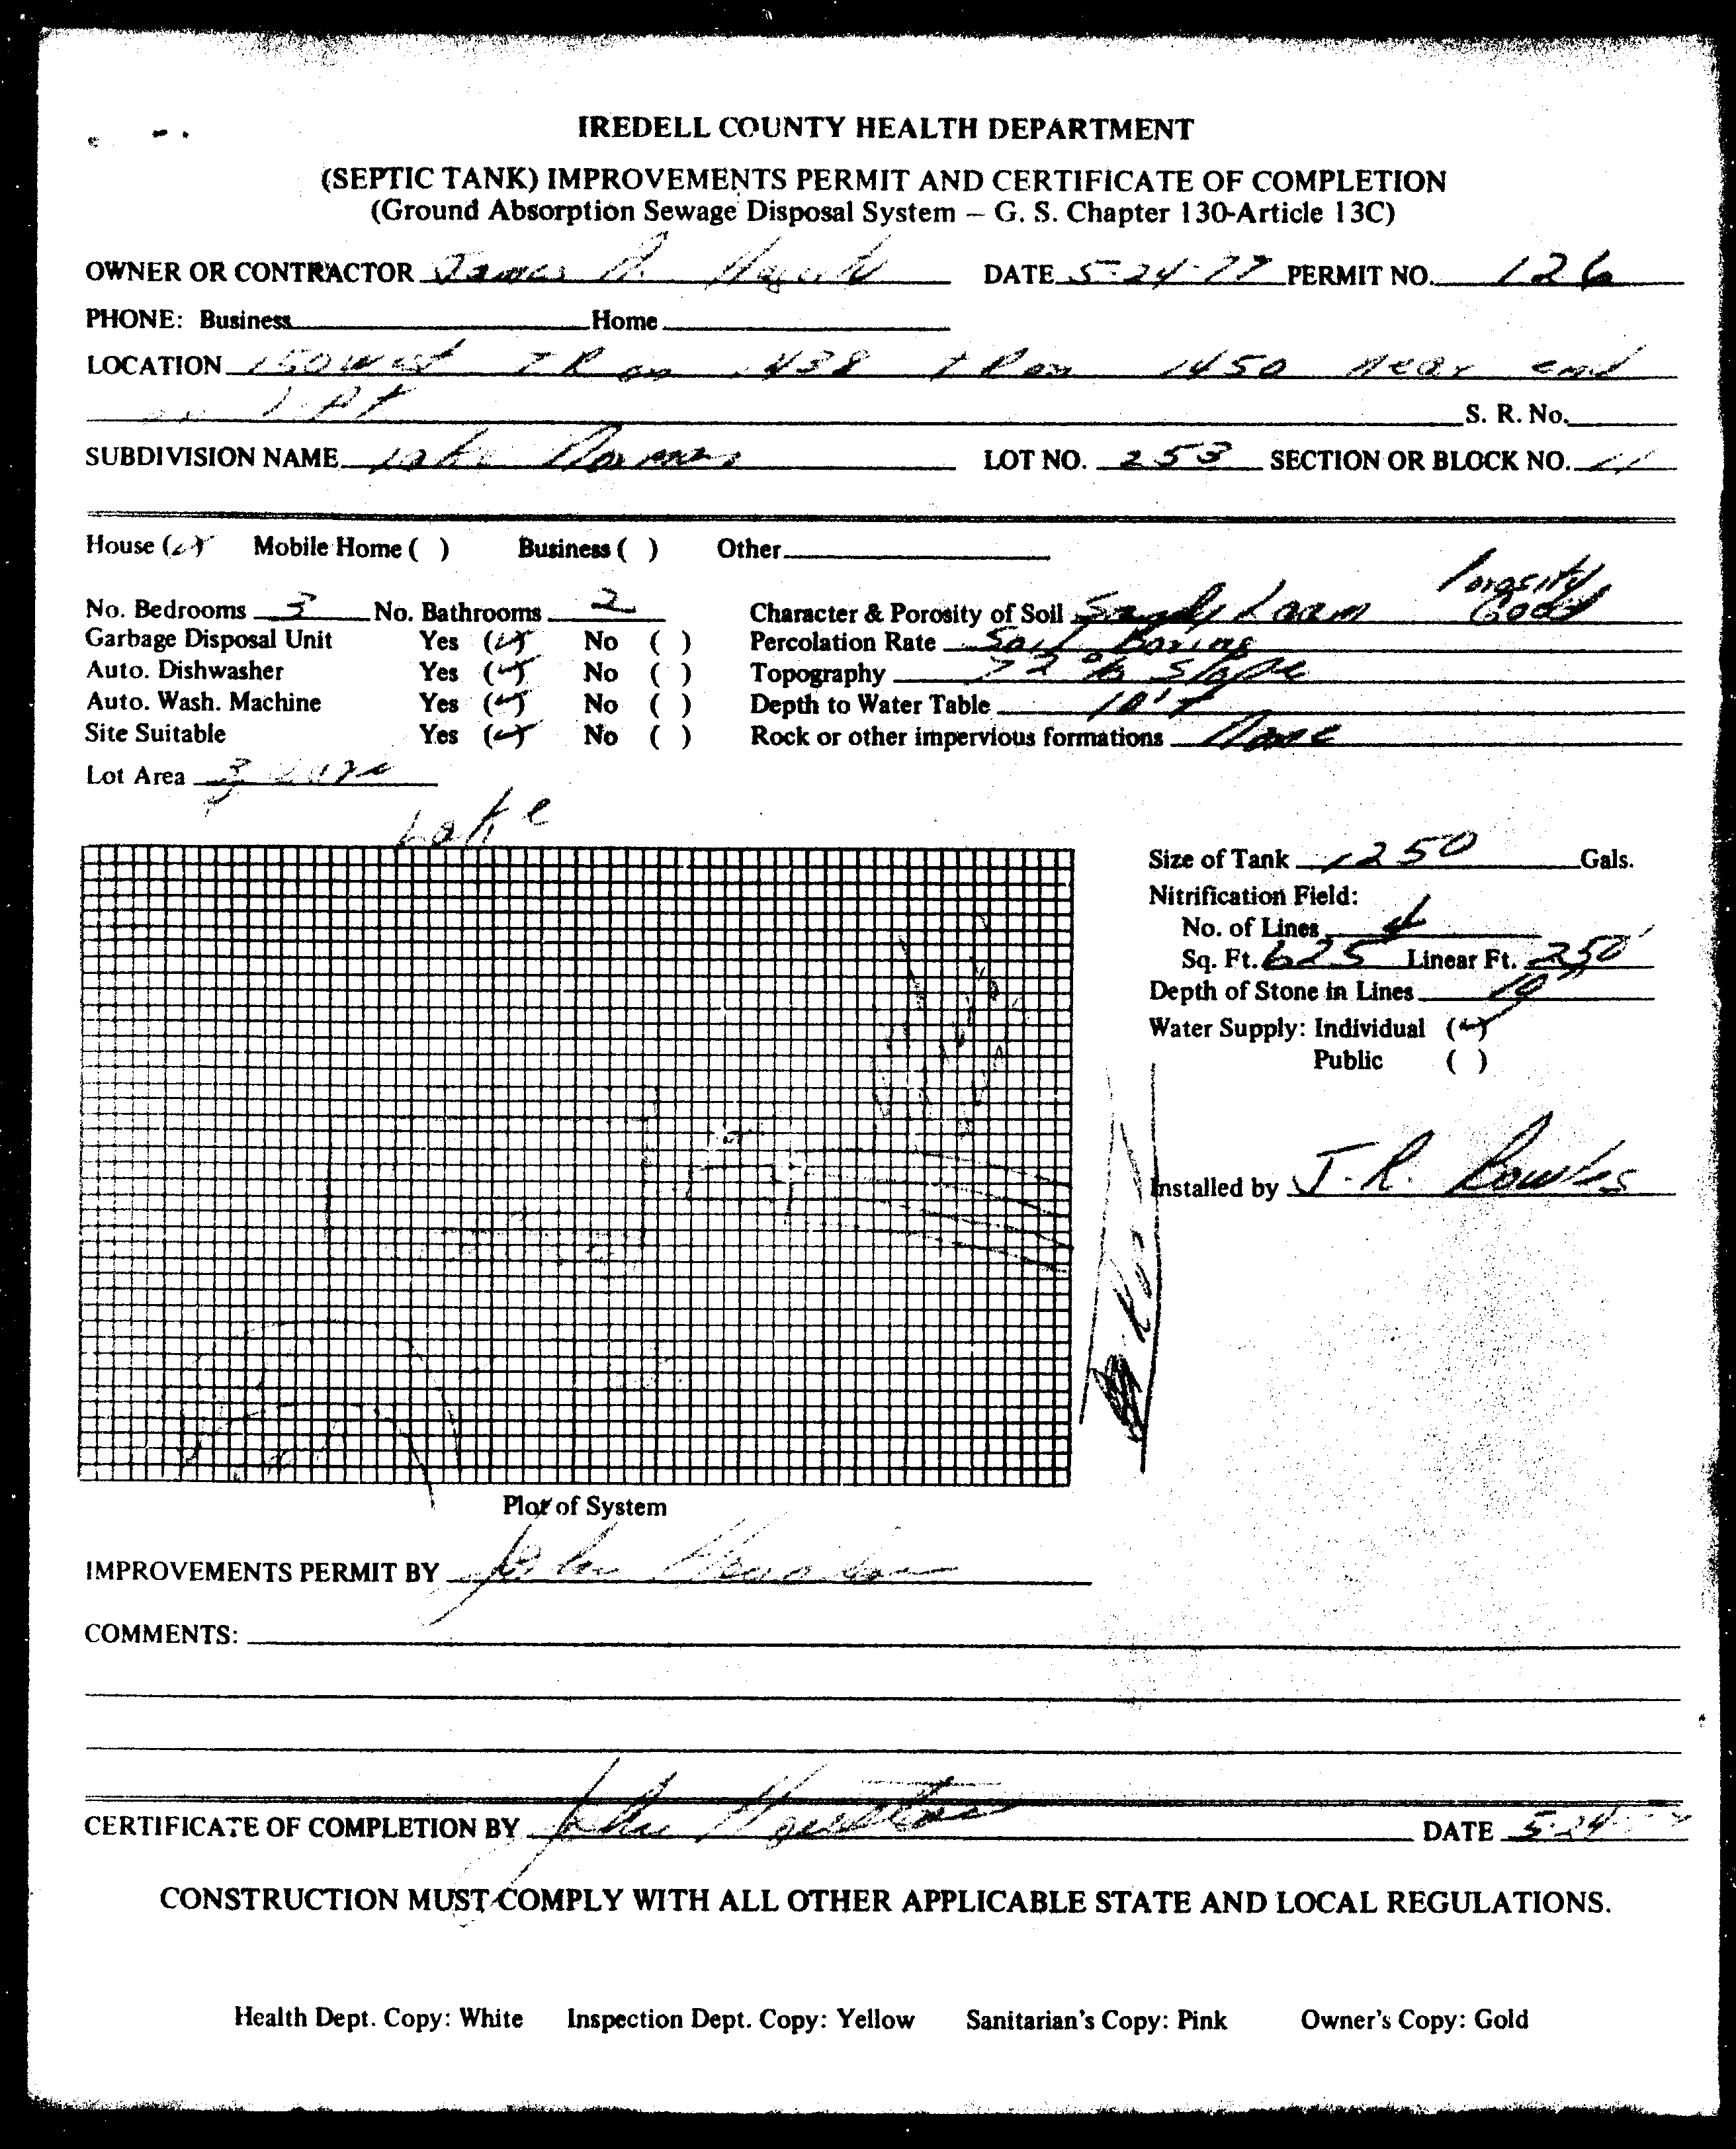 IREDELL COUNTY HEALTH DEPARTMENT
(SEPTIC TANK) IMPROVEMENTS PERMIT AND CERTIFICATE OF COMPLETION
(Ground Absorption Sewage Disposal System – G. S. Chapter 130-Article 13C)
OWNER OR CONTRACTOR James DATE 5-24-77 PERMIT NO. 126
PHONE: Business Home
LOCATION 150 West T R on 1438 T R on 1450 near end
on Rt S. R. No.
SUBDIVISION NAME Lake Norman LOT NO. 253 SECTION OR BLOCK NO. 11
House (✓) Mobile Home ( ) Business ( ) Other
Porosity
No. Bedrooms 3 No. Bathrooms 2 Character & Porosity of Soil Sandy Loam Good
Garbage Disposal Unit Yes (✓) No ( ) Percolation Rate Soil Boring
Auto. Dishwasher Yes (✓) No ( ) Topography 72 % Slope
Auto. Wash. Machine Yes (✓) No ( ) Depth to Water Table 10'+
Site Suitable Yes (✓) No ( ) Rock or other impervious formations None
Lot Area
Lake
Size of Tank 1250 Gals.
Nitrification Field:
No. of Lines 4
Sq. Ft. 625 Linear Ft. 250'
Depth of Stone in Lines 10"
Water Supply: Individual (✓)
Public ( )
Installed by J. R. Bowles
Plot of System
IMPROVEMENTS PERMIT BY John
COMMENTS:
CERTIFICATE OF COMPLETION BY John DATE 5-24-77
CONSTRUCTION MUST COMPLY WITH ALL OTHER APPLICABLE STATE AND LOCAL REGULATIONS.
Health Dept. Copy: White Inspection Dept. Copy: Yellow Sanitarian's Copy: Pink Owner's Copy: Gold